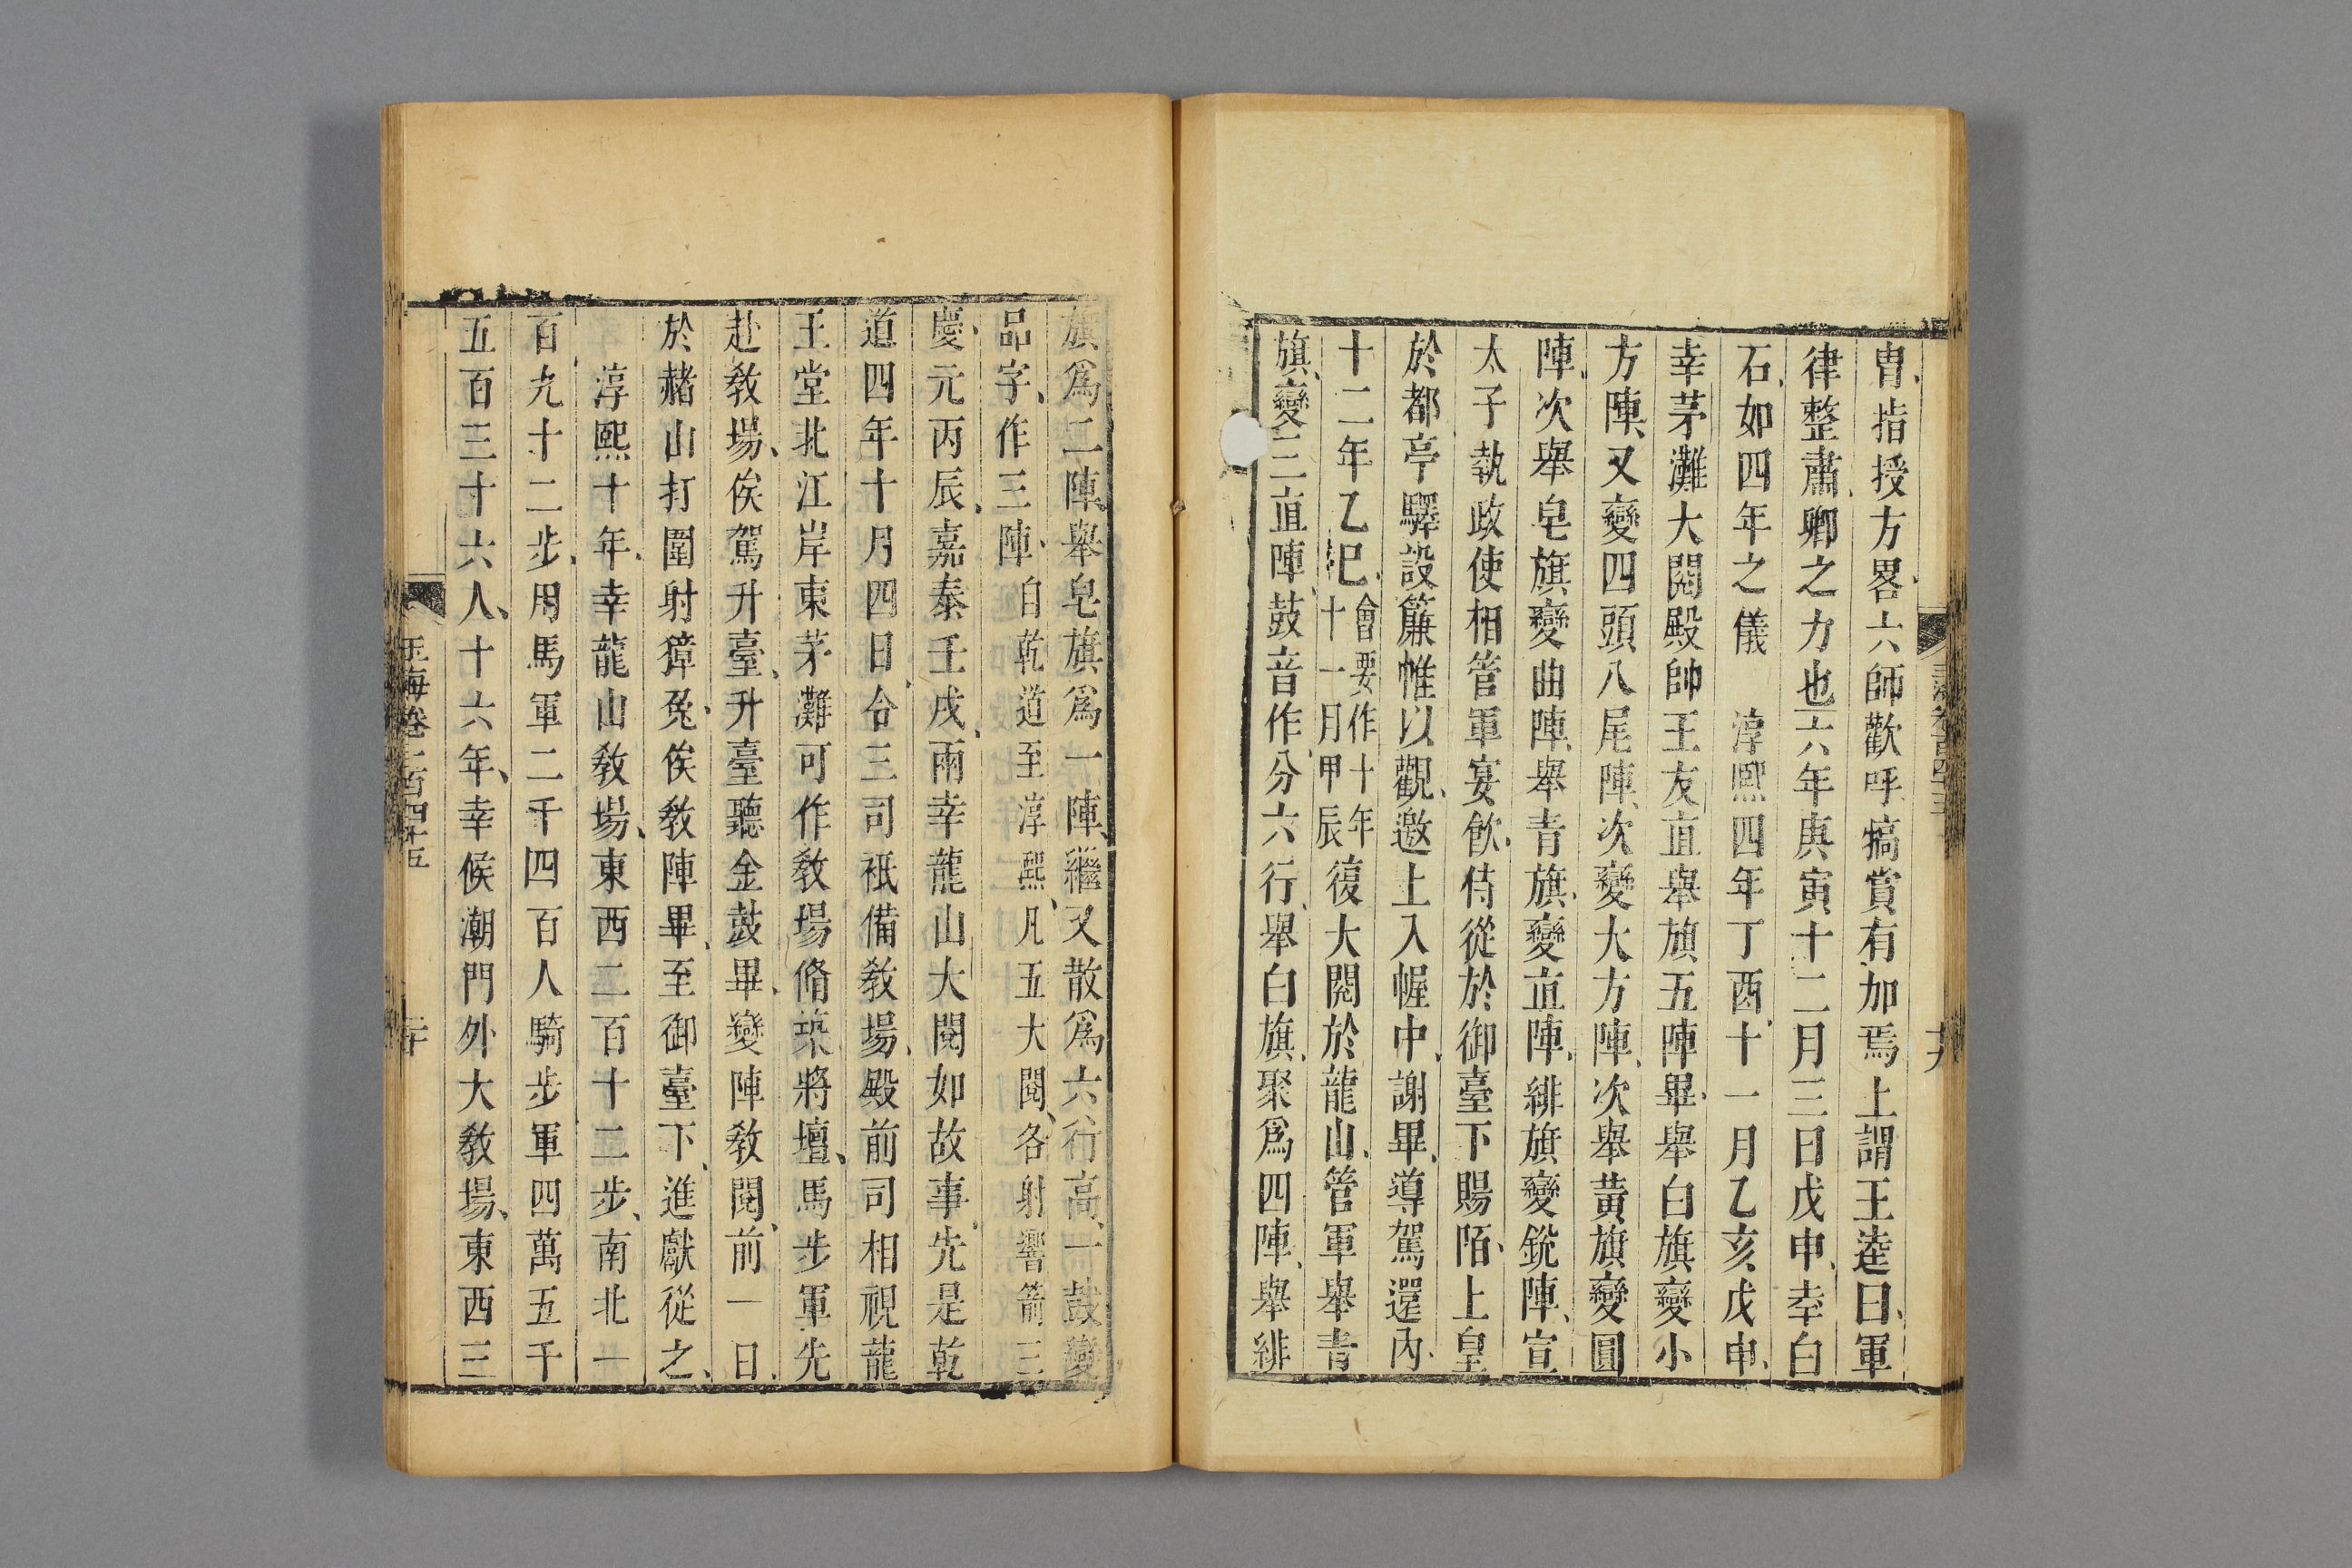 冑指授方畧六師歡呼犒賞有加焉上謂王逵曰軍
律整肅卿之力也六年庚寅十二月三日戊申幸白
石如四年之儀　淳熙四年丁酉十一月乙亥戊申
幸茅灘大閱殿帥王友直舉旗五陣畢舉白旗變小
方陣又變四頭八尾陣次變大方陣次舉黃旗變圓
陣次舉皂旗變曲陣舉青旗變直陣緋旗變銳陣宣
太子執政使相管軍宴飮侍從於御臺下賜陌上皇
於都亭驛設簾帷以觀邀上入幄中謝畢導駕還內
十二年乙巳會要作十年十一月甲辰復大閱於龍山管軍舉青
旗變三直陣鼓音作分六行舉白旗聚爲四陣舉緋
旗爲二陣舉皂旗爲一陣繼又散爲六行高一鼓變
品字作三陣自乾道至淳熙凡五大閱各射響箭三
慶元丙辰嘉泰壬戌兩幸龍山大閱如故事先是乾
道四年十月四日令三司祗備敎場殿前司相視龍
王堂北江岸東茅灘可作敎場脩築將壇馬步軍先
赴敎場俟駕升臺升臺聽金鼓畢變陣敎閱前一日
於赭山打圍射獐兔俟敎陣畢至御臺下進獻從之
淳熙十年幸龍山敎場東西二百十二步南北一
百九十二步用馬軍二千四百人騎步軍四萬五千
五百三十六人十六年幸候潮門外大敎場東西三
玉海卷一百四十五
二十